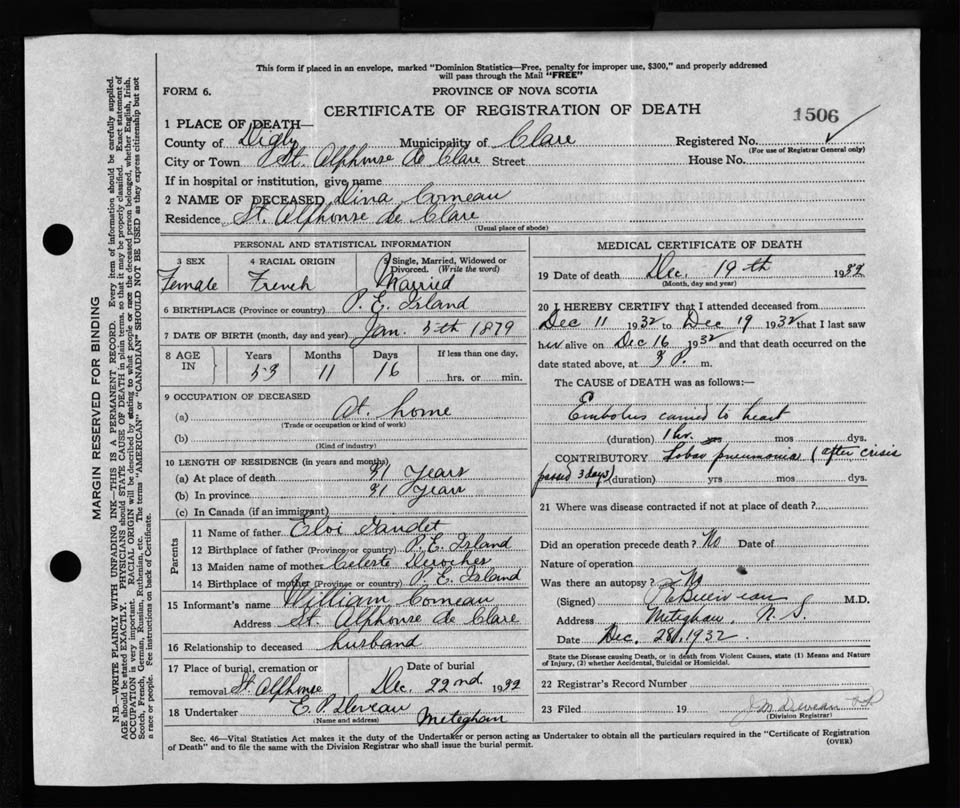 This form if placed in an envelope, marked "Dominion Statistics—Free, penalty for improper use, $300," and properly addressed
will pass through the Mail "FREE"
FORM 6.
PROVINCE OF NOVA SCOTIA
CERTIFICATE OF REGISTRATION OF DEATH
1506
1 PLACE OF DEATH—
County of Digby Municipality of Clare Registered No.
(For use of Registrar General only)
City or Town St. Alphonse de Clare Street House No.
If in hospital or institution, give name
2 NAME OF DECEASED Dina Comeau
Residence St. Alphonse de Clare
(Usual place of abode)
PERSONAL AND STATISTICAL INFORMATION
3 SEX 4 RACIAL ORIGIN 5 Single, Married, Widowed or
Divorced. (Write the word)
Female French Married
6 BIRTHPLACE (Province or country) P. E. Island
7 DATE OF BIRTH (month, day and year) Jan. 5th 1879
8 AGE IN Years Months Days If less than one day,
53 11 16 hrs. or min.
9 OCCUPATION OF DECEASED
(a) At home
(Trade or occupation or kind of work)
(b)
(Kind of industry)
10 LENGTH OF RESIDENCE (in years and months)
(a) At place of death 31 Years
(b) In province 31 Years
(c) In Canada (if an immigrant)
Parents
11 Name of father Eloi Gaudet
12 Birthplace of father (Province or country) P. E. Island
13 Maiden name of mother Celeste Deroches
14 Birthplace of mother (Province or country) P. E. Island
15 Informant's name William Comeau
Address St. Alphonse de Clare
16 Relationship to deceased husband
17 Place of burial, cremation or Date of burial
removal St. Alphonse Dec. 22nd 1932
18 Undertaker E. P. Deveau Meteghan
(Name and address)
MEDICAL CERTIFICATE OF DEATH
19 Date of death Dec. 19th 1932
(Month, day and year)
20 I HEREBY CERTIFY that I attended deceased from
Dec 11 1932 to Dec 19 1932 that I last saw
her alive on Dec 16 1932 and that death occurred on the
date stated above, at 3 P. m.
The CAUSE OF DEATH was as follows:—
Embolus carried to heart
(duration) 1 hr. yrs mos dys.
CONTRIBUTORY Lobar pneumonia (after crisis
passed 3 days) (duration) yrs mos dys.
21 Where was disease contracted if not at place of death?
Did an operation precede death? No Date of
Nature of operation
Was there an autopsy? No
(Signed) M.D.
Address Meteghan, N. S.
Date Dec. 1932.
State the Disease causing Death, or in death from Violent Causes, state (1) Means and Nature
of Injury, (2) whether Accidental, Suicidal or Homicidal.
22 Registrar's Record Number
23 Filed 19 J. M. Deveau
(Division Registrar)
Sec. 46—Vital Statistics Act makes it the duty of the Undertaker or person acting as Undertaker to obtain all the particulars required in the "Certificate of Registration
of Death" and to file the same with the Division Registrar who shall issue the burial permit.
(OVER)
MARGIN RESERVED FOR BINDING
N.B.—WRITE PLAINLY WITH UNFADING INK—THIS IS A PERMANENT RECORD. Every item of information should be carefully supplied.
AGE should be stated EXACTLY. PHYSICIANS should STATE CAUSE OF DEATH in plain terms, so that it may be properly classified. Exact statement of
OCCUPATION is very important. RACIAL ORIGIN will be described by stating to what people or race the deceased person belonged, whether English, Irish,
Scotch, French, German, Russian, Ruthenian, etc. The terms "AMERICAN" or "CANADIAN" SHOULD NOT BE USED as they express citizenship but not
a race or people. See instructions on back of Certificate.